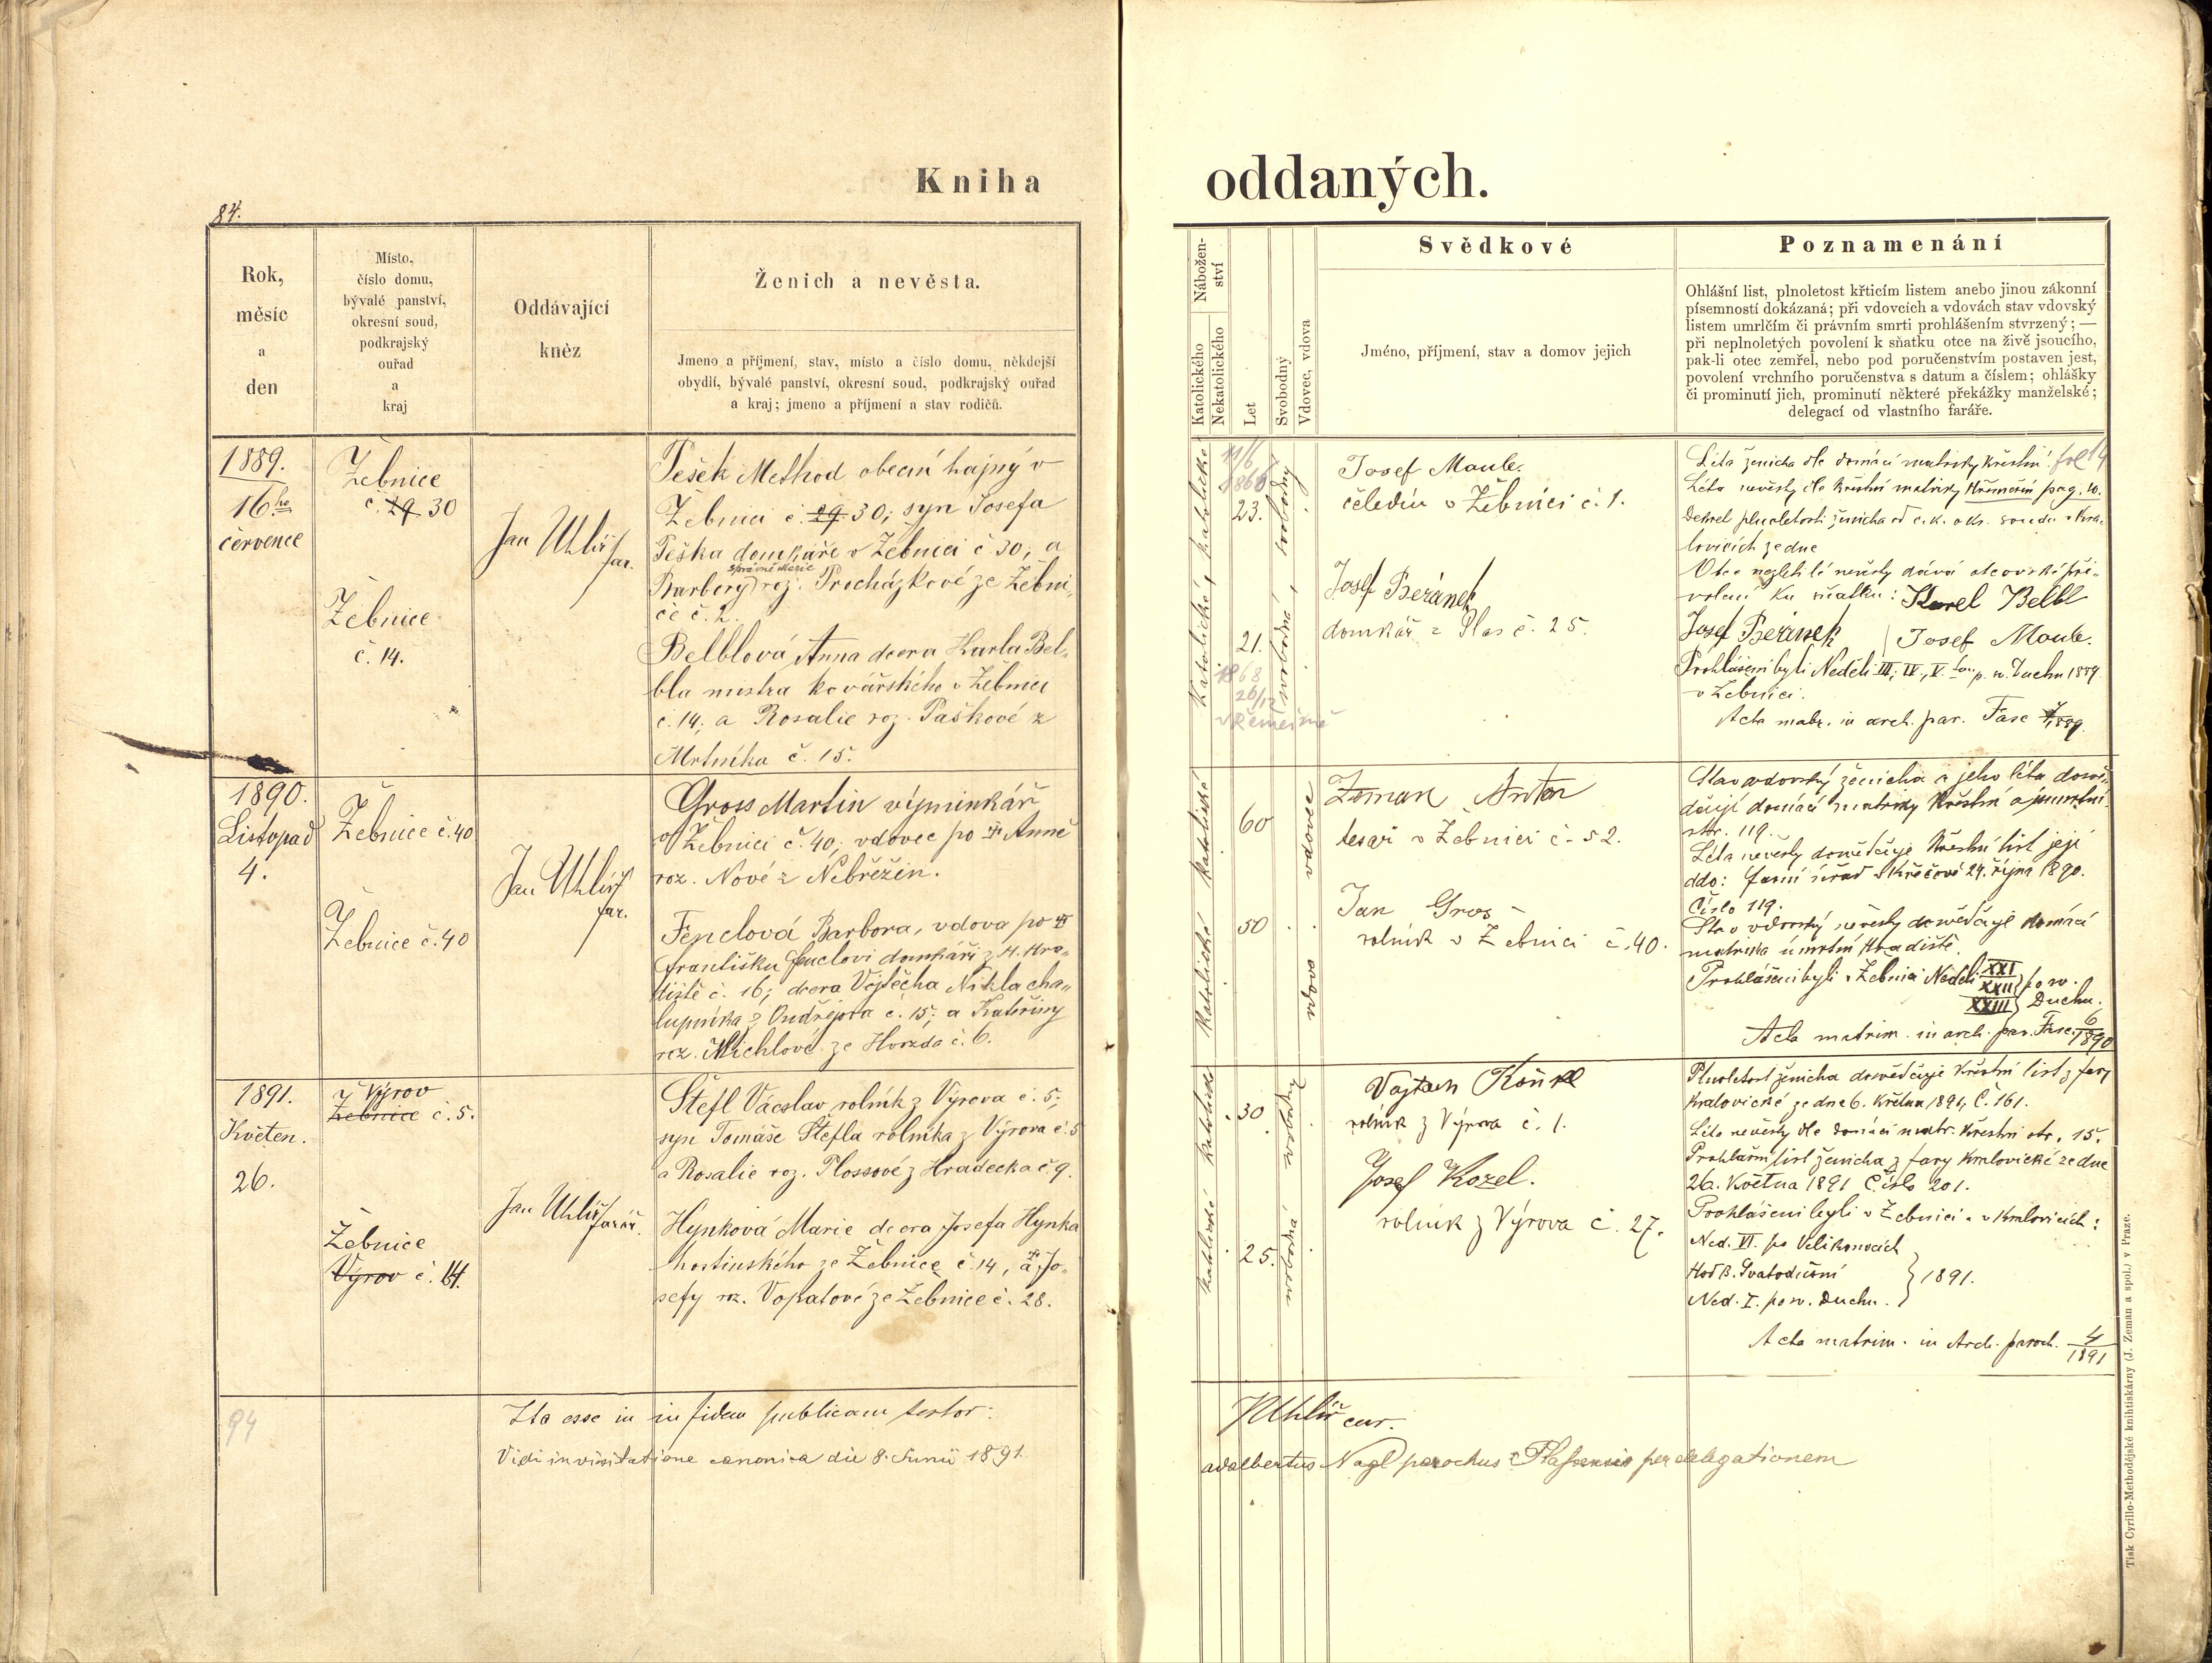 Kniha
84.
Rok,
měsíc
a
den
Místo,
číslo domu,
bývalé panství,
okresní soud,
podkrajský
ouřad
a
kraj
Oddávající
kněz
Ženich a nevěsta.
Jmeno a příjmení, stav, místo a číslo domu, někdejší
obydlí, bývalé panství, okresní soud, podkrajský ouřad
a kraj; jmeno a příjmení a stav rodičů.
1889.
16ho
července
Žebnice
č. 29 30
Žebnice
č. 14.
Jan Uhlíř
far.
Pešek Method obecní hajný v
Žebnici č. 29. 30; syn Josefa
Peška domkáře v Žebnici č 30; a
správně Marie
Barbery roz. Procházkové ze Žebni-
ce č. 2.
Belblová Anna dcera Karla Bel-
bla mistra kovářského v Žebnici
č. 14; a Rosalie roz. Paškové z
Mrtníka č. 15.
1890.
Listopad
4.
Žebnice č. 40
Žebnice č. 40
Jan Uhlíř
far.
Gross Martin výminkář
v Žebnici č. 40; vdovec po Anně
roz. Nové z Nebřežin.
Fenclová Barbora, vdova po
Františku Fenclovi domkáři z H. Hra-
diště č. 16; dcera Vojtěcha Nikla cha-
lupníka z Ondřejova č. 15; a Kateřiny
roz. Michlové ze Hvozda č. 6.
1891.
Květen.
26.
z Výrov
Žebnice č. 5.
Žebnice
Výrov č. 14.
Jan Uhlíř
farář.
Štefl Vácslav rolník z Výrova č. 5;
syn Tomáše Štefla rolníka z Výrova č. 5
a Rosalie roz. Plossové z Hradecka č. 9.
Hynková Marie dcera Josefa Hynka
hostinského ze Žebnice č. 14, a Jo-
sefy roz. Vopatové ze Žebnice č. 28.
94
Ita esse in in fidem publicam testor:
Vidi in visitatione canonica die 8. Junii 1891
oddaných.
Nábožen-
ství
Katolického
Nekatolického
Let
Svobodný
Vdovec, vdova
Svědkové
Jméno, příjmení, stav a domov jejich
Poznamenání
Ohlášní list, plnoletost křticím listem anebo jinou zákonní
písemností dokázaná; při vdovcích a vdovách stav vdovský
listem umrlčím či právním smrti prohlášením stvrzený; —
při neplnoletých povolení k sňatku otce na živě jsoucího,
pak-li otec zemřel, nebo pod poručenstvím postaven jest,
povolení vrchního poručenstva s datum a číslem; ohlášky
či prominutí jich, prominutí některé překážky manželské;
delegací od vlastního faráře.
Katolické, katolické
11/6
1866
23.
21.
1868
26/12
v Křemešně
svobodná, svobodný
Josef Maule.
čeledín v Žebnici č. 1.
Josef Beránek
domkář z Plas č. 25.
Léta ženicha dle domácí matriky křestní fol 14
Léta nevěsty dle křestní matriky pag. 10.
Dekret plnoletosti ženicha od c. k. okr. soudu v Kra-
lovicích ze dne
Otec nezletilé nevěsty dává otcovské při-
volení ku sňatku: Karel Belbl
Josef Beránek Josef Maule.
Prohlášeni byli Neděli III, IV, V. p. sv. Duchu 1889
v Žebnici.
Acta matr. in arch. par. Fasc
Katolické katolické
60
50
vdova vdovec
Zeman Anton
tesař v Žebnici č. 52.
Jan Gros
rolník v Žebnici č. 40.
Stav vdovský ženicha a jeho léta dosvě-
dčují domácí matriky křestní a úmrtní
str. 119.
Léta nevěsty dosvědčuje křestní list její
ddo: farní úřad v Křečově 24. října 1890.
Číslo 119.
Stav vdovský nevěsty dosvědčuje domácí
matrika úmrtní, Hradiště.
Prohlášeni byli v Žebnici Neděli XXI
XXII } po sv.
XXIII Duchu.
Acta matrim. in arch. par. Fasc. 6
1890
katolické katolické
30
25.
svobodná svobodný
Vojtěch Koňkl
rolník z Výrova č. 1.
Josef Kozel.
rolník z Výrova č. 27.
Plnoletost ženicha dosvědčuje křestní list z fary
Kralovické ze dne 6. května 1891, č. 161.
Léta nevěsty dle domácí matr. křestní str. 15.
Prohlašní list ženicha z fary Kralovické ze dne
26. května 1891 číslo 201.
Prohlášeni byli v Žebnici a v Kralovicích:
Ned. VI. po Velikonocích
Hod B. Svatodušní } 1891.
Ned. I. po sv. Duchu.
Acta matrim. in Arch. paroch. 4
1891
JUhlíř cur.
Adalbertus Nagl parochus Plassensis per delegationem
Tisk Cyrillo-Methodějské knihtiskárny (J. Zeman a spol.) v Praze.